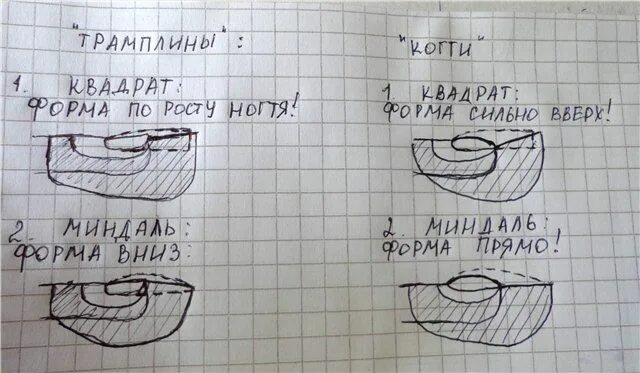 "ТРАМПЛИНЫ":
1. КВАДРАТ:
ФОРМА ПО РОСТУ НОГТЯ!
2. МИНДАЛЬ:
ФОРМА ВНИЗ:
"КОГТИ"
1. КВАДРАТ:
ФОРМА СИЛЬНО ВВЕРХ!
2. МИНДАЛЬ:
ФОРМА ПРЯМО!